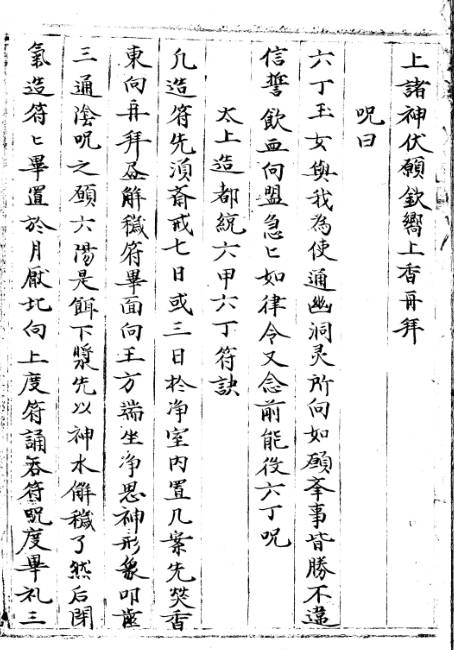 上諸神伏願歆嚮上香再拜
呪曰
六丁玉女與我為使通幽洞灵所向如願夆事皆勝不違
信誓飲血向盟急匕如律令又念前能役六丁呪
太上造都統六甲六丁符訣
凡造符先湏斎戒七日或三日於净室内置几案先焚香
東向再拜及解穢符畢面向王方端坐净思神形象叩齒
三通陰呪之願六陽是餌下漿先以神水解穢了然后閉
氣造符匕畢置於月厭北向上度符誦吞符呪度畢礼三